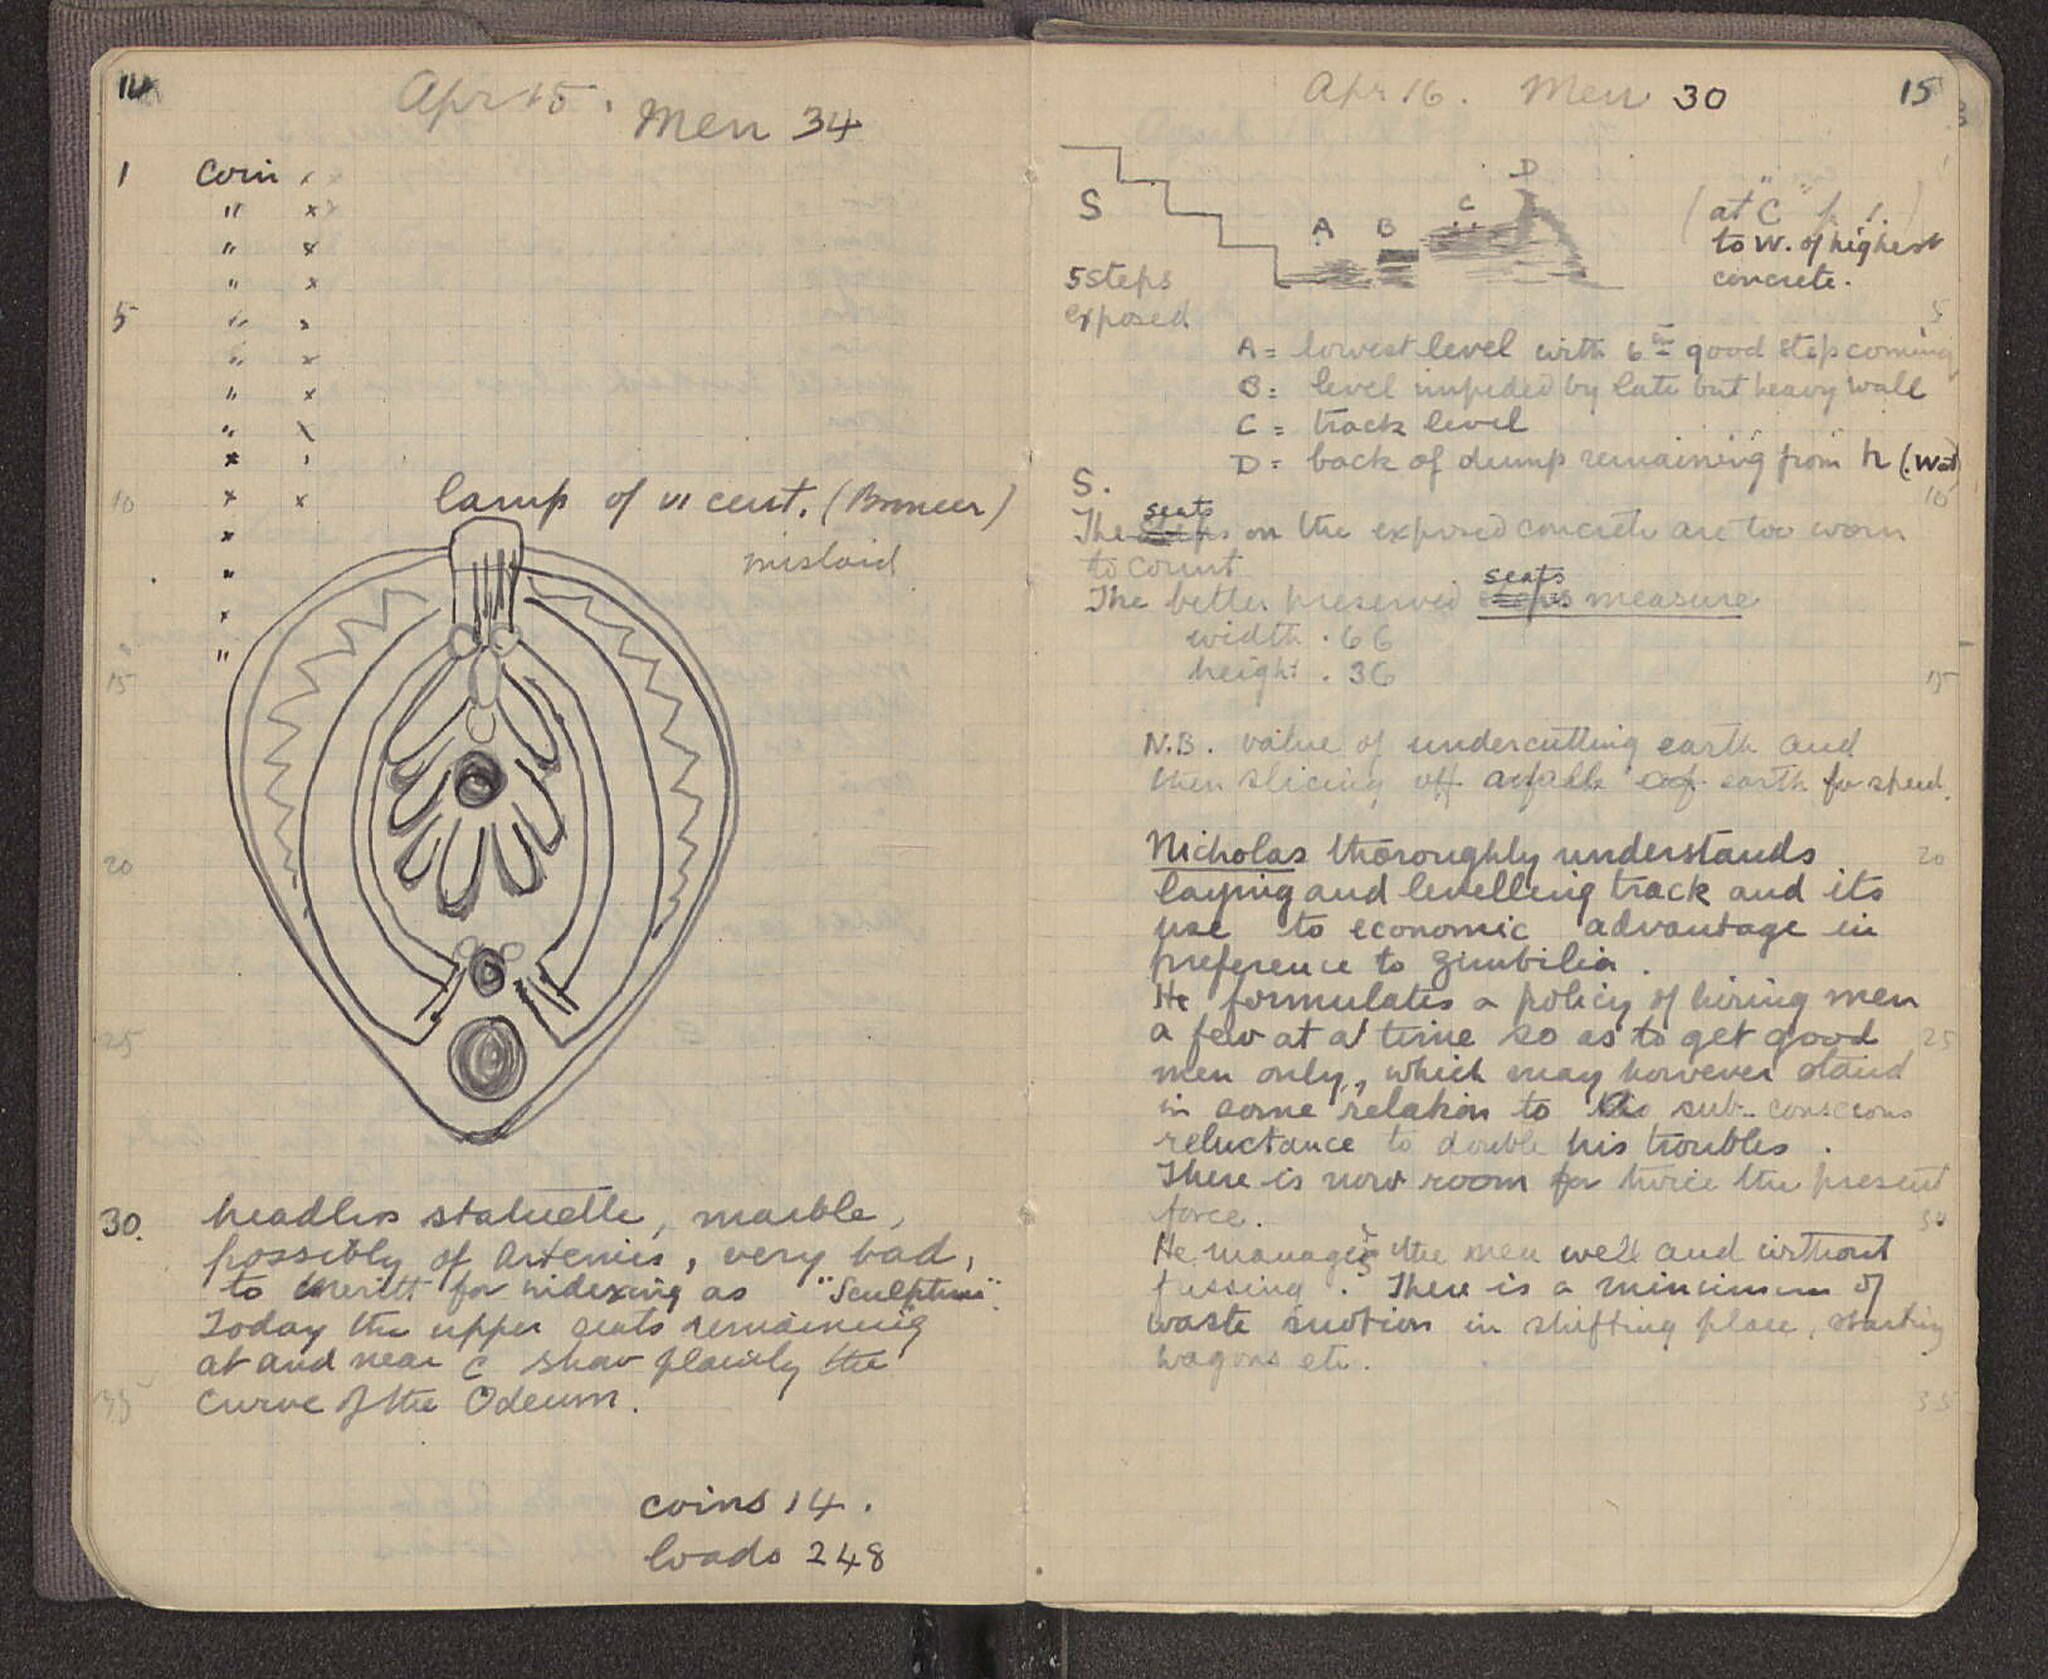 14
Apr 15. Men 34
1 Coin x x
" x
" x
" x
5 "
" x
" x
" \
x
10 x x
lamp of VI cent. (Broneer)
mislaid
x
"
x
"
15
20
25
30. headless statuette, marble,
possibly of Artemis, very bad,
to Meritt for indexing as "Sculpture".
Today the upper seats remaining
at and near C show plainly the
35 curve of the Odeum.
coins 14.
loads 248
Apr 16. Men 30 15
S
A B C D
(at "C" p 1.)
to W. of highest
concrete.
5 steps
exposed
5
A = lowest level with 6th good step coming
B = level impeded by late but heavy wall
C = track level
D = back of dump remaining from h (.Wat)
S.
10
The steps seats on the exposed concrete are too worn
to count
The better preserved steps seats measure
width .66
height .36
15
N.B. value of undercutting earth and
then slicing off earth for speed.
Nicholas thoroughly understands 20
laying and levelling track and its
use to economic advantage in
preference to Zimbilia.
He formulates a policy of hiring men
a few at a time so as to get good 25
men only, which may however stand
in some relation to his sub-conscious
reluctance to double his troubles.
There is now room for twice the present
force. 30
He manages the men well and without
fussing. There is a minimum of
waste motion in shifting place, starting
wagons etc.
35